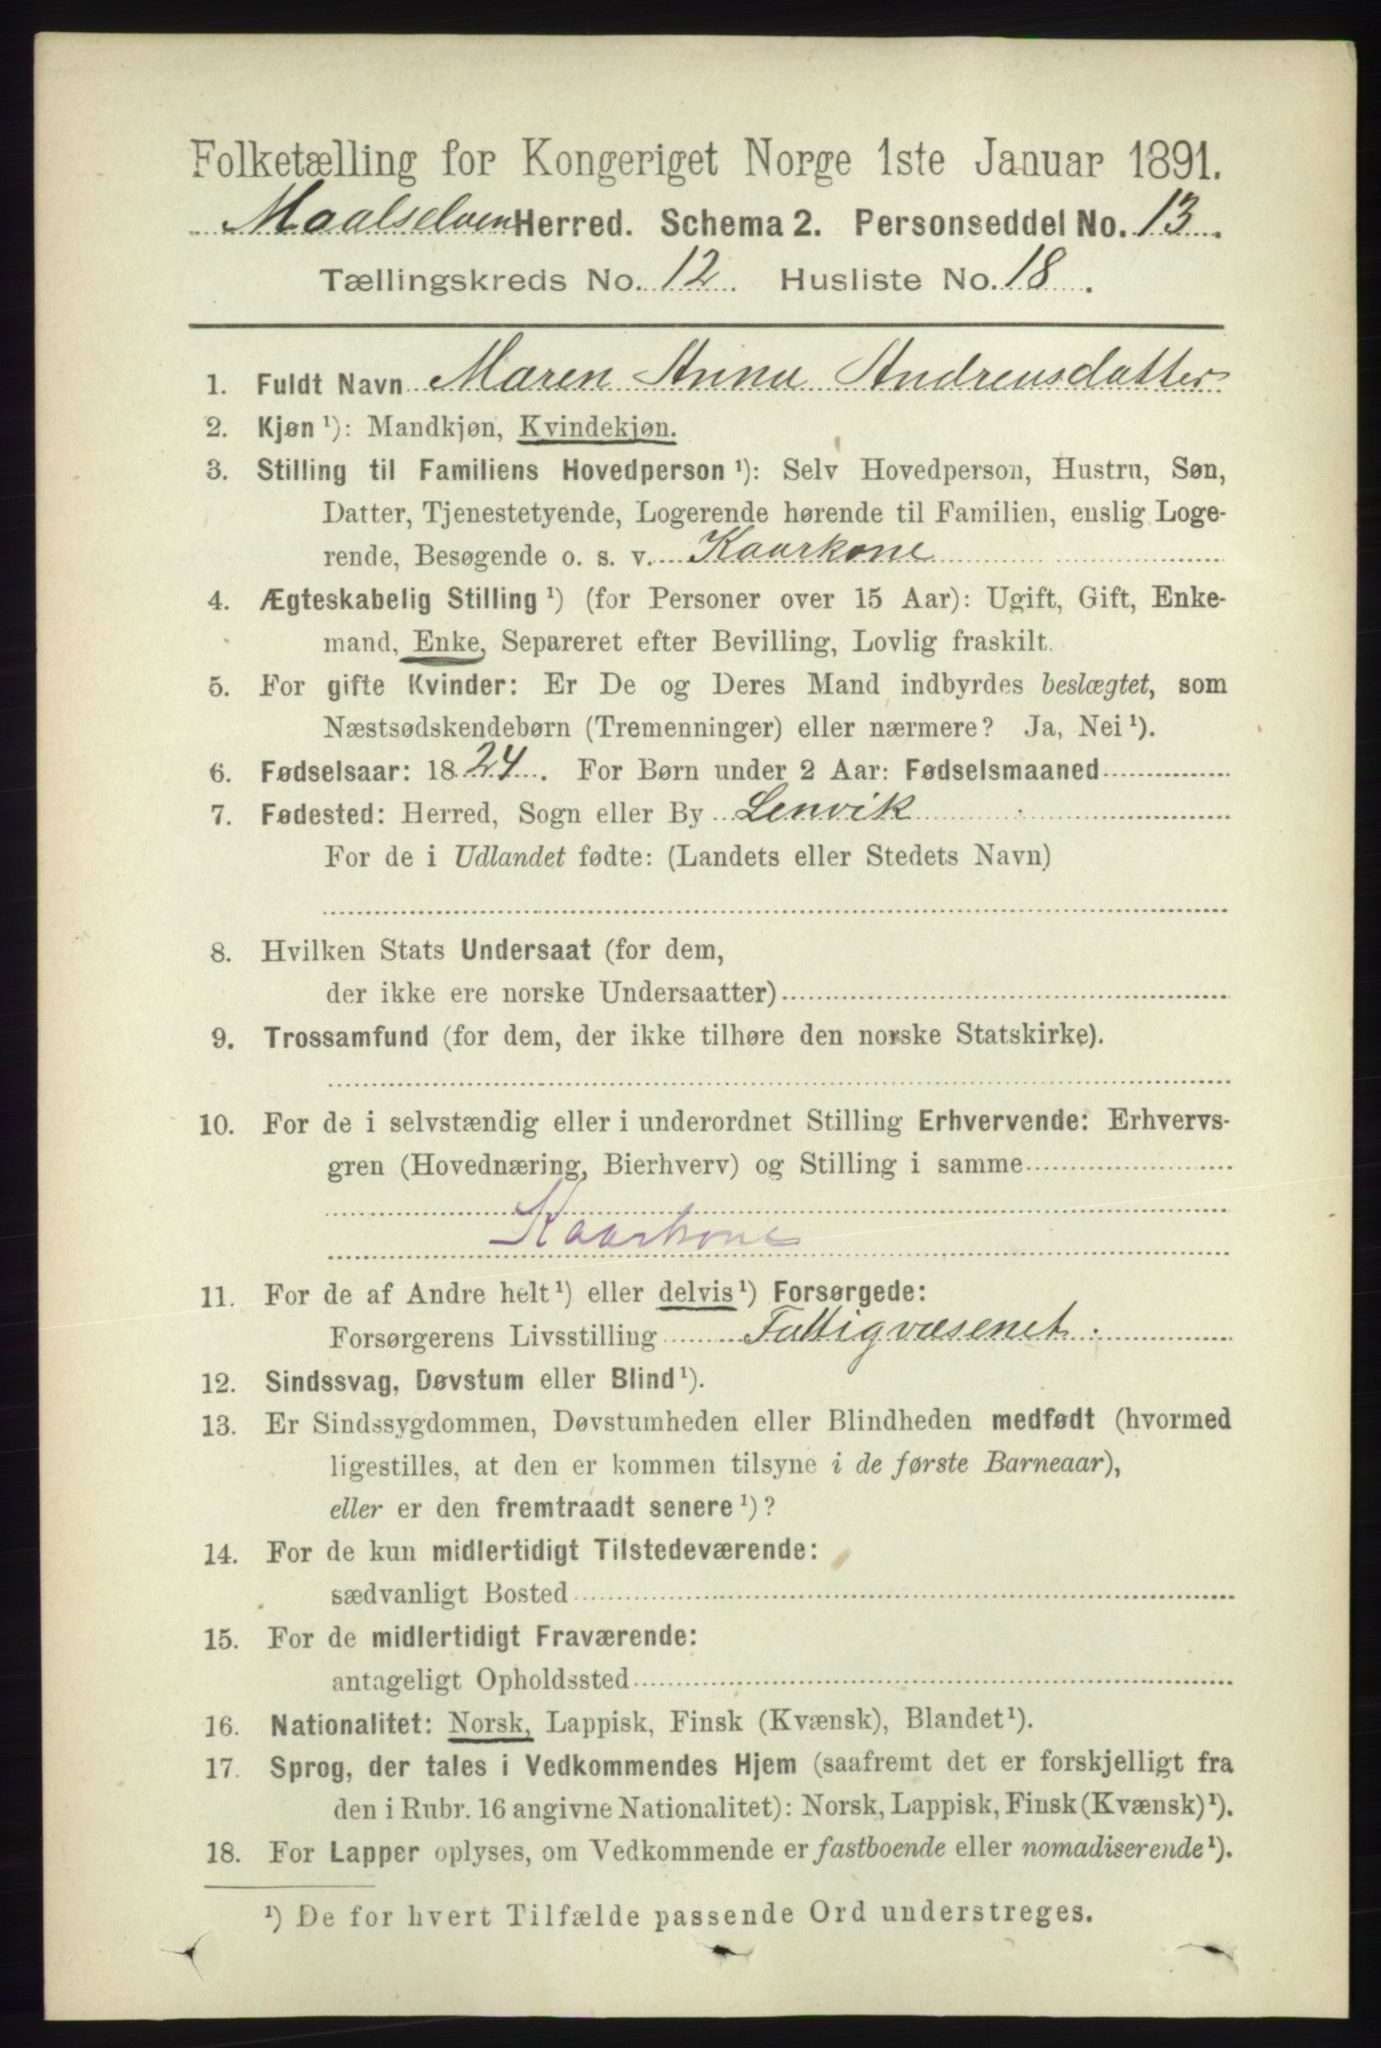 Folketælling for Kongeriget Norge 1ste Januar 1891.
Maalselven Herred. Schema 2. Personseddel No. 13.
Tællingskreds No. 12 Husliste No. 18.
1. Fuldt Navn Maren Anna Andreasdatter
2. Kjøn ¹): Mandkjøn, Kvindekjøn.
3. Stilling til Familiens Hovedperson ¹): Selv Hovedperson, Hustru, Søn,
Datter, Tjenestetyende, Logerende hørende til Familien, enslig Loge-
rende, Besøgende o. s. v. Kaarkone
4. Ægteskabelig Stilling ¹) (for Personer over 15 Aar): Ugift, Gift, Enke-
mand, Enke, Separeret efter Bevilling, Lovlig fraskilt.
5. For gifte Kvinder: Er De og Deres Mand indbyrdes beslægtet, som
Næstsødskendebørn (Tremenninger) eller nærmere? Ja, Nei ¹).
6. Fødselsaar: 1824. For Børn under 2 Aar: Fødselsmaaned
7. Fødested: Herred, Sogn eller By Lenvik
For de i Udlandet fødte: (Landets eller Stedets Navn)
8. Hvilken Stats Undersaat (for dem,
der ikke ere norske Undersaatter)
9. Trossamfund (for dem, der ikke tilhøre den norske Statskirke).
10. For de i selvstændig eller i underordnet Stilling Erhvervende: Erhvervs-
gren (Hovednæring, Bierhverv) og Stilling i samme
Kaarkone
11. For de af Andre helt ¹) eller delvis ¹) Forsørgede:
Forsørgerens Livsstilling Fattigvæsenet.
12. Sindssvag, Døvstum eller Blind ¹).
13. Er Sindssygdommen, Døvstumheden eller Blindheden medfødt (hvormed
ligestilles, at den er kommen tilsyne i de første Barneaar),
eller er den fremtraadt senere ¹)?
14. For de kun midlertidigt Tilstedeværende:
sædvanligt Bosted
15. For de midlertidigt Fraværende:
antageligt Opholdssted
16. Nationalitet: Norsk, Lappisk, Finsk (Kvænsk), Blandet ¹).
17. Sprog, der tales i Vedkommendes Hjem (saafremt det er forskjelligt fra
den i Rubr. 16 angivne Nationalitet): Norsk, Lappisk, Finsk (Kvænsk) ¹).
18. For Lapper oplyses, om Vedkommende er fastboende eller nomadiserende ¹).
¹) De for hvert Tilfælde passende Ord understreges.